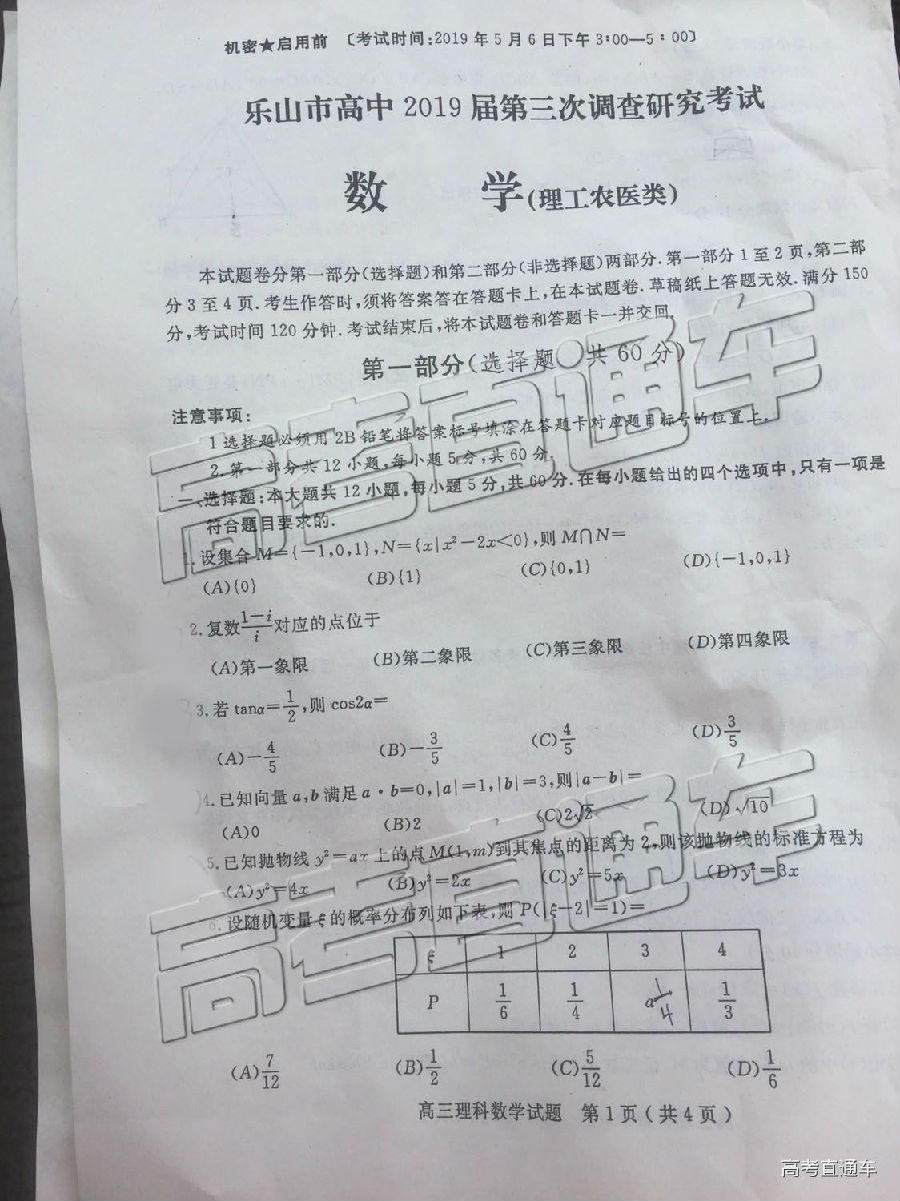 机密★启用前 〔考试时间:2019年5月6日下午3:00—5:00〕
乐山市高中2019届第三次调查研究考试
数 学(理工农医类)
本试题卷分第一部分(选择题)和第二部分(非选择题)两部分.第一部分1至2页,第二部
分3至4页.考生作答时,须将答案答在答题卡上,在本试题卷.草稿纸上答题无效.满分150
分,考试时间120分钟.考试结束后,将本试题卷和答题卡一并交回.
第一部分(选择题 共60分)
注意事项:
1选择题必须用2B铅笔将答案标号填涂在答题卡对应题目标号的位置上.
2.第一部分共12小题,每小题5分,共60分.
一、选择题:本大题共12小题,每小题5分,共60分.在每小题给出的四个选项中,只有一项是
符合题目要求的.
1.设集合M={-1,0,1},N={x|x²-2x<0},则M∩N=
(A){0} (B){1} (C){0,1} (D){-1,0,1}
2.复数(1-i)/i对应的点位于
(A)第一象限 (B)第二象限 (C)第三象限 (D)第四象限
3.若tanα=1/2,则cos2α=
(A)-4/5 (B)-3/5 (C)4/5 (D)3/5
4.已知向量a,b满足a·b=0,|a|=1,|b|=3,则|a-b|=
(A)0 (B)2 (C)2√2 (D)√10
5.已知抛物线y²=ax上的点M(1,m)到其焦点的距离为2,则该抛物线的标准方程为
(A)y²=4x (B)y²=2x (C)y²=5x (D)y²=3x
6.设随机变量ξ的概率分布列如下表,则P(|ξ-2|=1)=
ξ 1 2 3 4
P 1/6 1/4 a 1/4 1/3
(A)7/12 (B)1/2 (C)5/12 (D)1/6
高三理科数学试题 第1页(共4页)
高考直通车
高考直通车
高考直通车